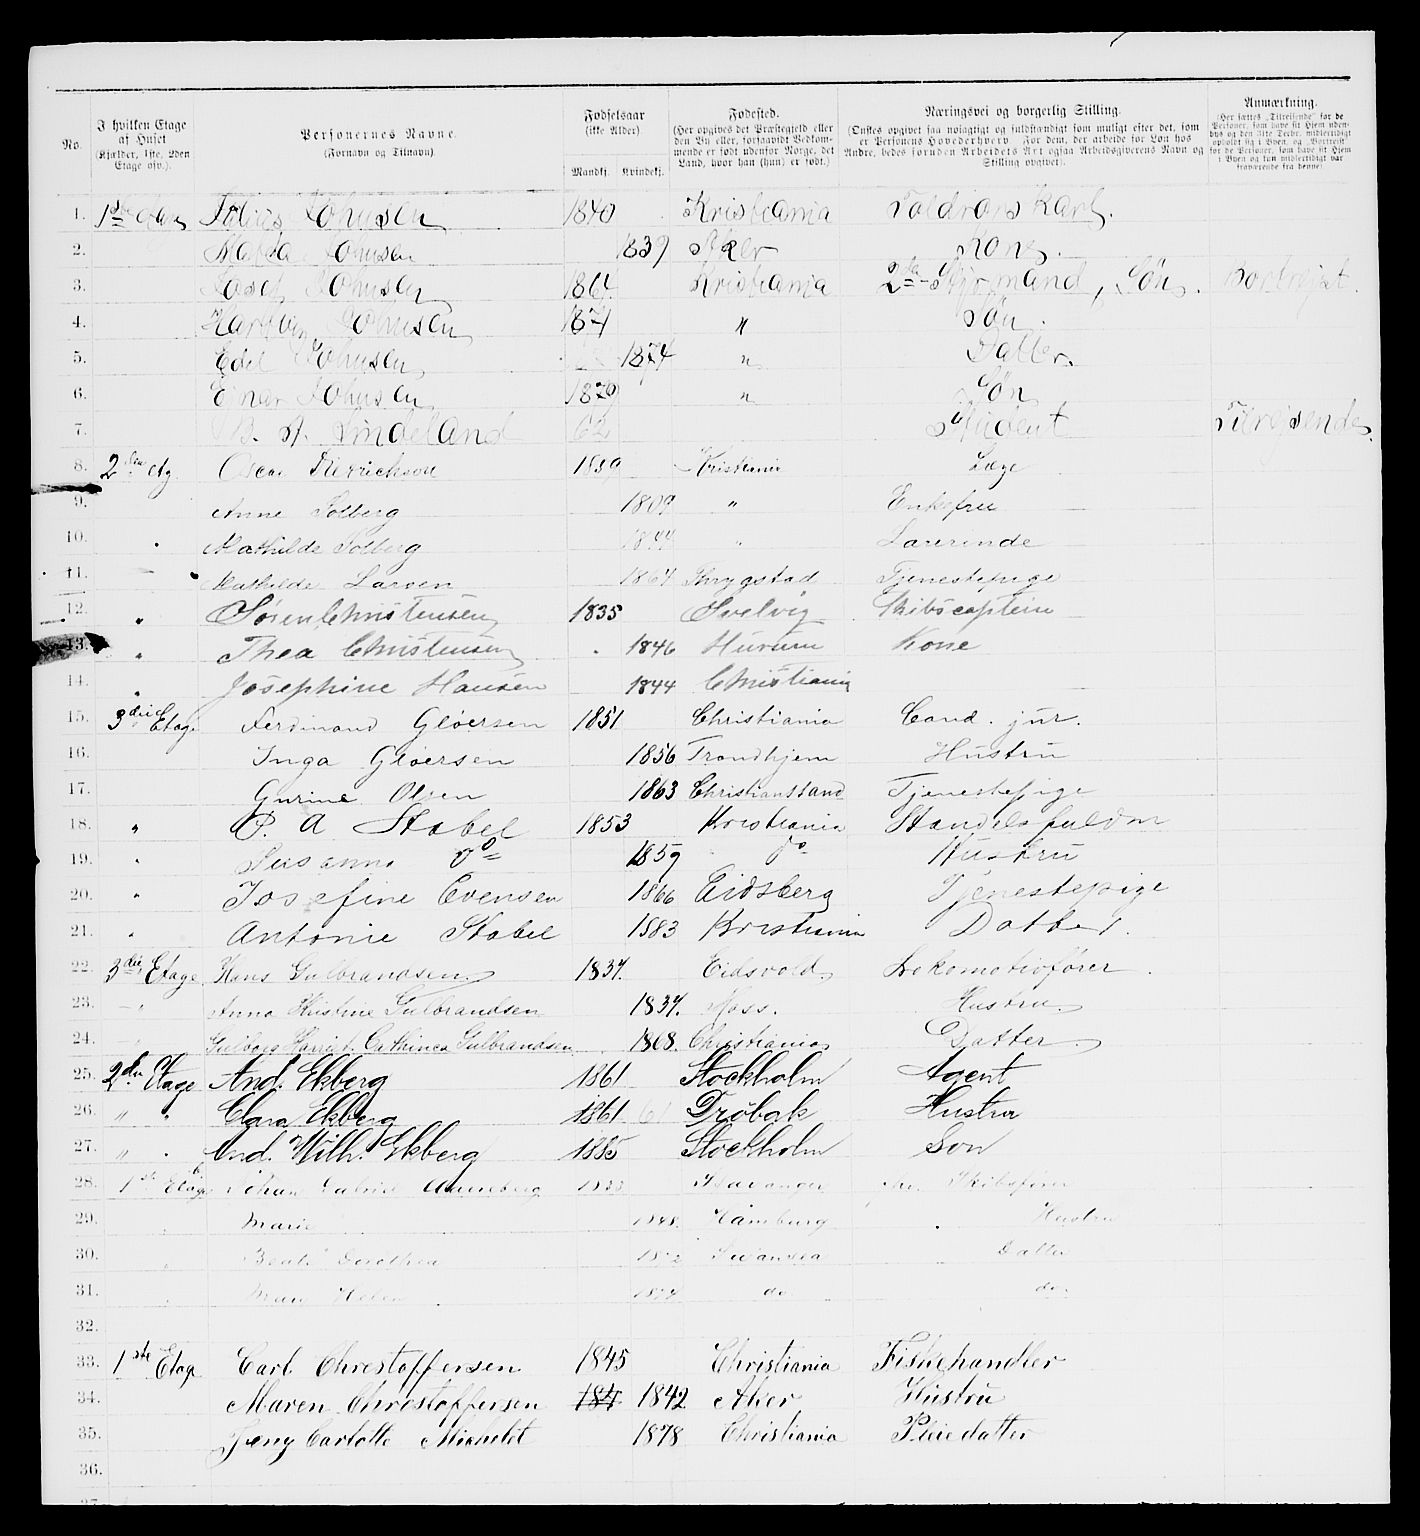 No. | I hvilken Etage af Huset (Kjælder, 1ste, 2den Etage osv.). | Personernes Navne. (Fornavn og Tilnavn). | Fødselsaar (ikke Alder). Mandkj. | Kvindekj. | Fødested. (Her opgives det Præstegjeld eller den By eller, forsaavidt Vedkommende er født udenfor Norge, det Land, hvor han (hun) er født.) | Næringsvei og borgerlig Stilling. (Ønskes opgivet saa nøiagtigt og fuldstændigt som muligt efter det, som er Personens Hovederhverv. For dem, der arbeide for Løn hos Andre, bedes foruden Arbeidets Art ogsaa Arbeidsgiverens Navn og Stilling opgivet). | Anmærkning. (Her sættes „Tilreisende“ for de Personer, som have sit Hjem udenbys og den 31te Decbr. midlertidigt opholdt sig i Byen, og „Bortreist“ for de Personer, som have sit Hjem i Byen og kun midlertidigt var fraværende fra denne).
1. Johnsen 1840 Kristiania Karl.
2. Johnsen 1839 Aker Kone.
3. Josef Johnsen 1864 Kristiania 2den Styrmand, Søn. Bortrejst.
4. Johnsen 1871 " Søn.
5. Edel Johnsen 1874 " Datter.
6. Ejnar Johnsen 1879 " Søn
7. B. A. Lindeland 62 Student Tilrejsende.
8. 2den Etg. Oscar 1859 Kristiania Læge
9. Anne Solberg 1809 " Enkefru
10. Mathilde Solberg 1844 " Lærerinde
11. Mathilde Larsen 1864 Trygstad Tjenestepige
12. " Søren Christensen 1835 Svelvig Skibscaptein
13. " Thea Christensen 1846 Hurum Kone
14. " Josephine Hansen 1844 Christiania
15. 3die Etage Ferdinand Gløersen 1851 Christiania Cand. jur.
16. Inga Gløersen 1856 Trondhjem Hustru
17. Gurine Olsen 1863 Christianssand Tjenestepige
18. " P. A Stabel 1853 Kristiania
19. " Susanna do 1859 do Hustru
20. " Josefine Evensen 1866 Eidsberg Tjenestepige
21. " Antonie Stabel 1883 Kristiania Datter.
22. 3die Etage Hans Gulbrandsen 1837. Eidsvold Lokomotivfører.
23. — " Anna Kristine Gulbrandsen 1837. Moss. Hustru
24. Harriet Cathinca Gulbrandsen 1868. Christiania Datter.
25. 2den Etage And. Ekberg 1861 Stockholm Agent
26. " " Clara Ekberg 1861 61 Drøbak Hustru
27. " " And. Wilh. Ekberg 1885 Stockholm Son
28. 1ste Etage Johan Gabriel Stavanger Skibsfører
29. Marie 1848. Hamburg Hustru
30. Dorothea 1872 Swansea Datter
31. Mary Helen 1874 do do.
32.
33. 1ste Etag Carl Christoffersen 1845 Christiania Fiskehandler
34. Maren Christoffersen 184 1842 Aker Hustru
35. Jeny Carlotte Michelet 1878 Christiania Pleiedatter
36.
37.